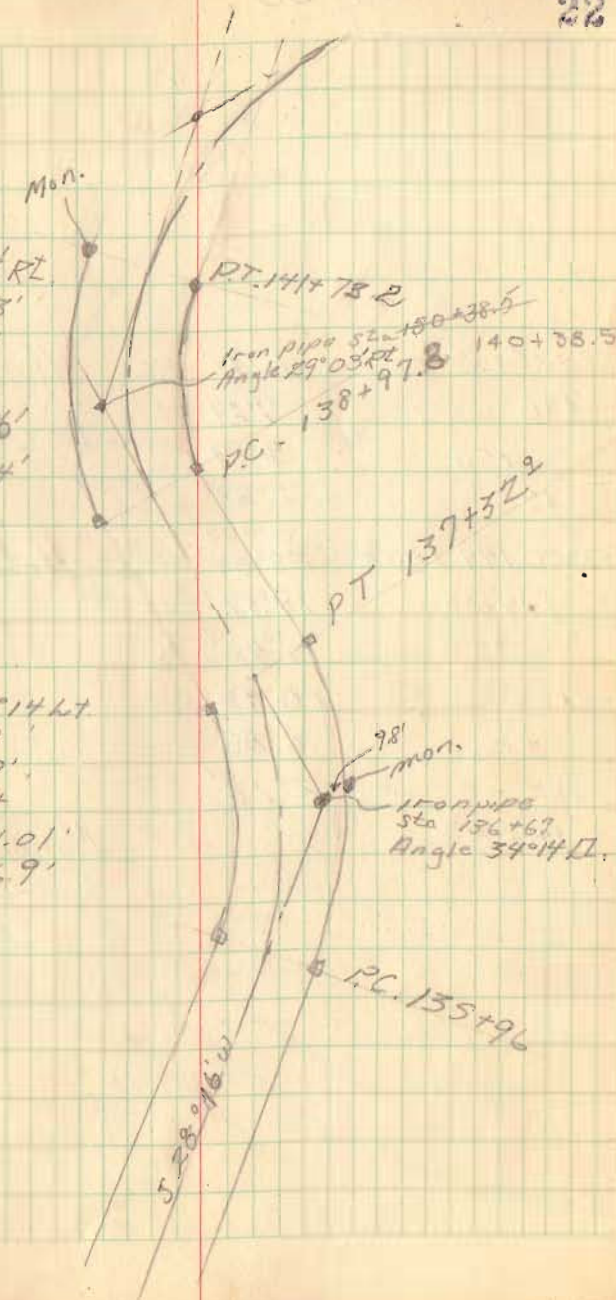 22
Mon.
Rt
P.T. 141+78.2
Iron pipe sta 150+38.5
140+38.5
Angle 29°03' Rt.
P.C - 138+97.8
PT 137+32.9
14 Lt.
98'
mon.
Iron pipe
sta 136+67
Angle 34°14 Lt.
.01'
.9'
P.C. 135+96
S 28°16' W